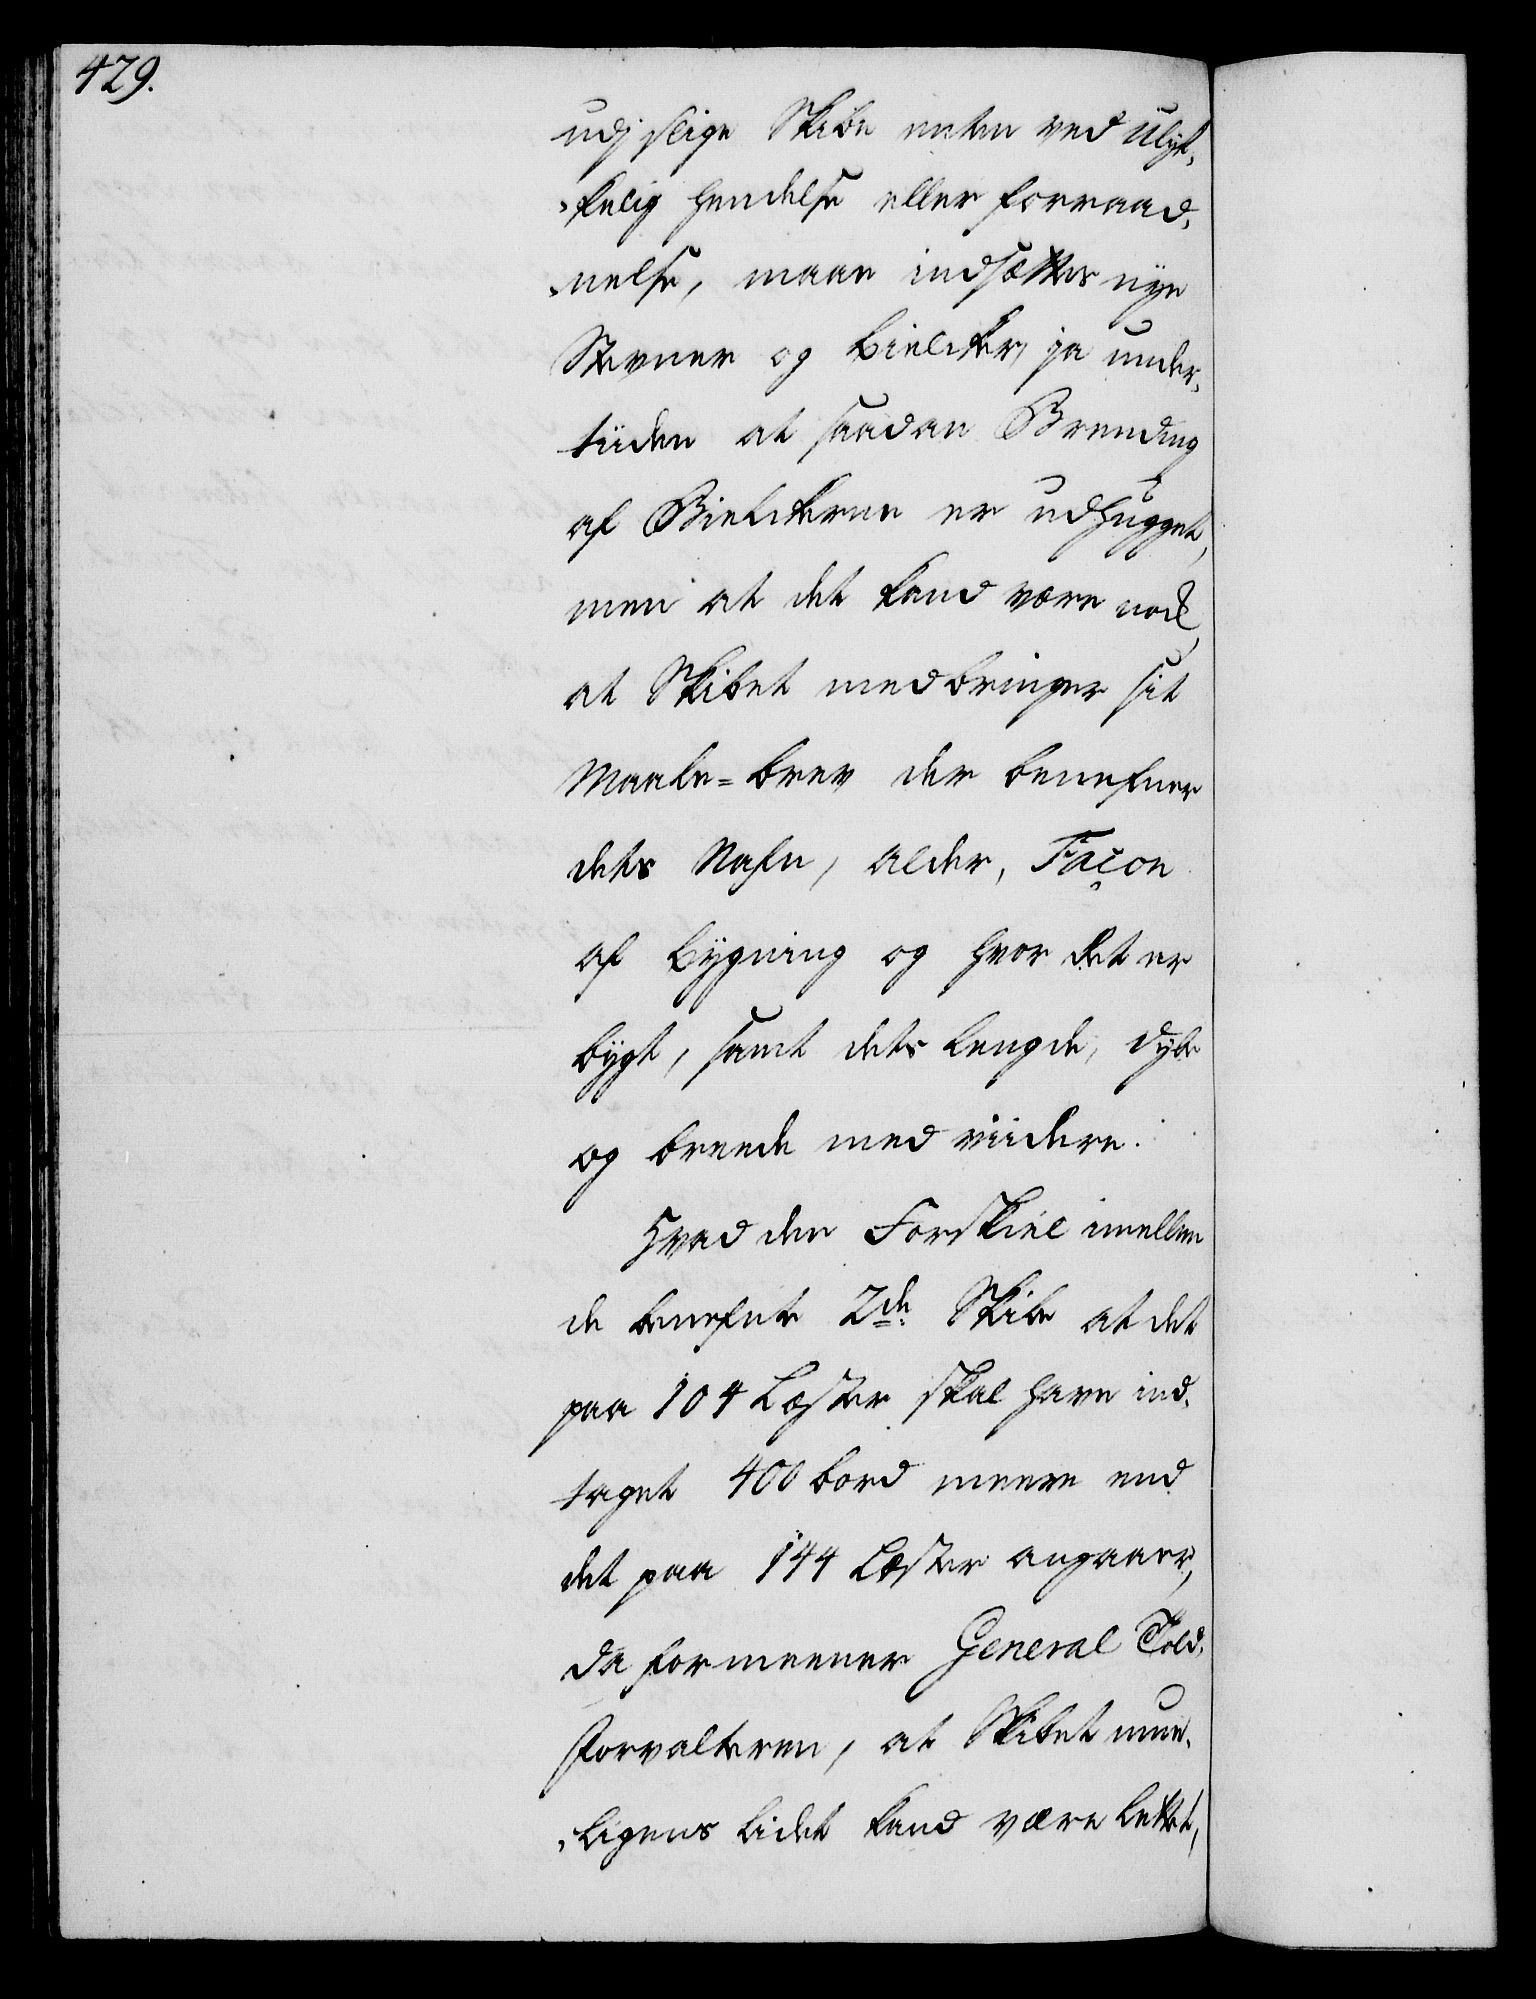 429.
udj slige Skibe enten ved Ulyk,
,kelig hendelse eller forraad,
,nelse, maae indsættes nye
Stevner og Bielcker, ja under,
tiiden at saadan Brending
af Bielckerne er udhugget,
men at det kand være nock,
at Skibet medbringer sit
Maale=brev der benefner
dets Nafn, alder, Façon
af bygning og hvor det er
bygt, samt dets lengde, dybe
og breede med viidere.
Hvad den Forskiel imellem
de benefnte 2de Skibe at det
paa 104 Læster skal have ind,
taget 400 bord meere end
det paa 144 Læster angaaer,
da formeener General Told,
forvalteren, at Skibet mue,
,ligens lidet kand være lettet,